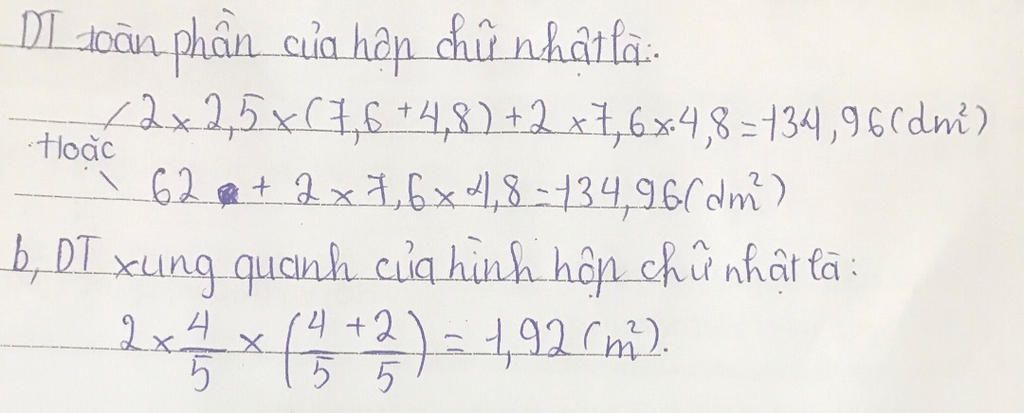 DT toàn phần của hộp chữ nhật là:
2 x 2,5 x (7,6 + 4,8) + 2 x 7,6 x 4,8 = 134,96 (dm²)
Hoặc
62 + 2 x 7,6 x 4,8 = 134,96 (dm²)
b, DT xung quanh của hình hộp chữ nhật là:
2 x 4/5 x (4/5 + 2/5) = 1,92 (m²).